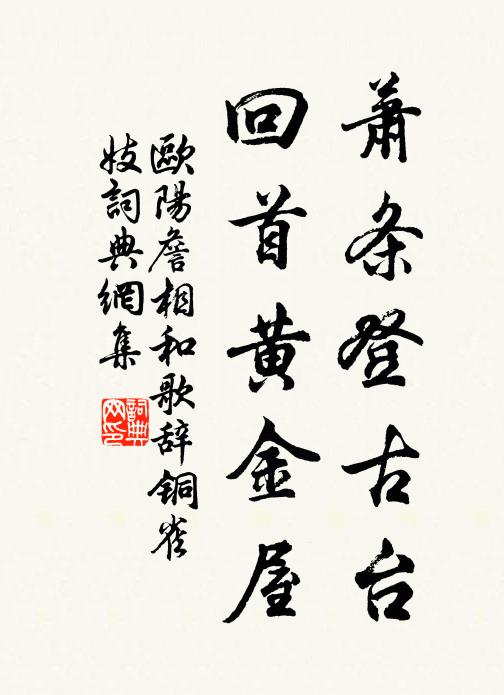 萧条登古台
回首黄金屋
歐陽詹相和歌辞铜雀
妓詞典網集
詞典
网印